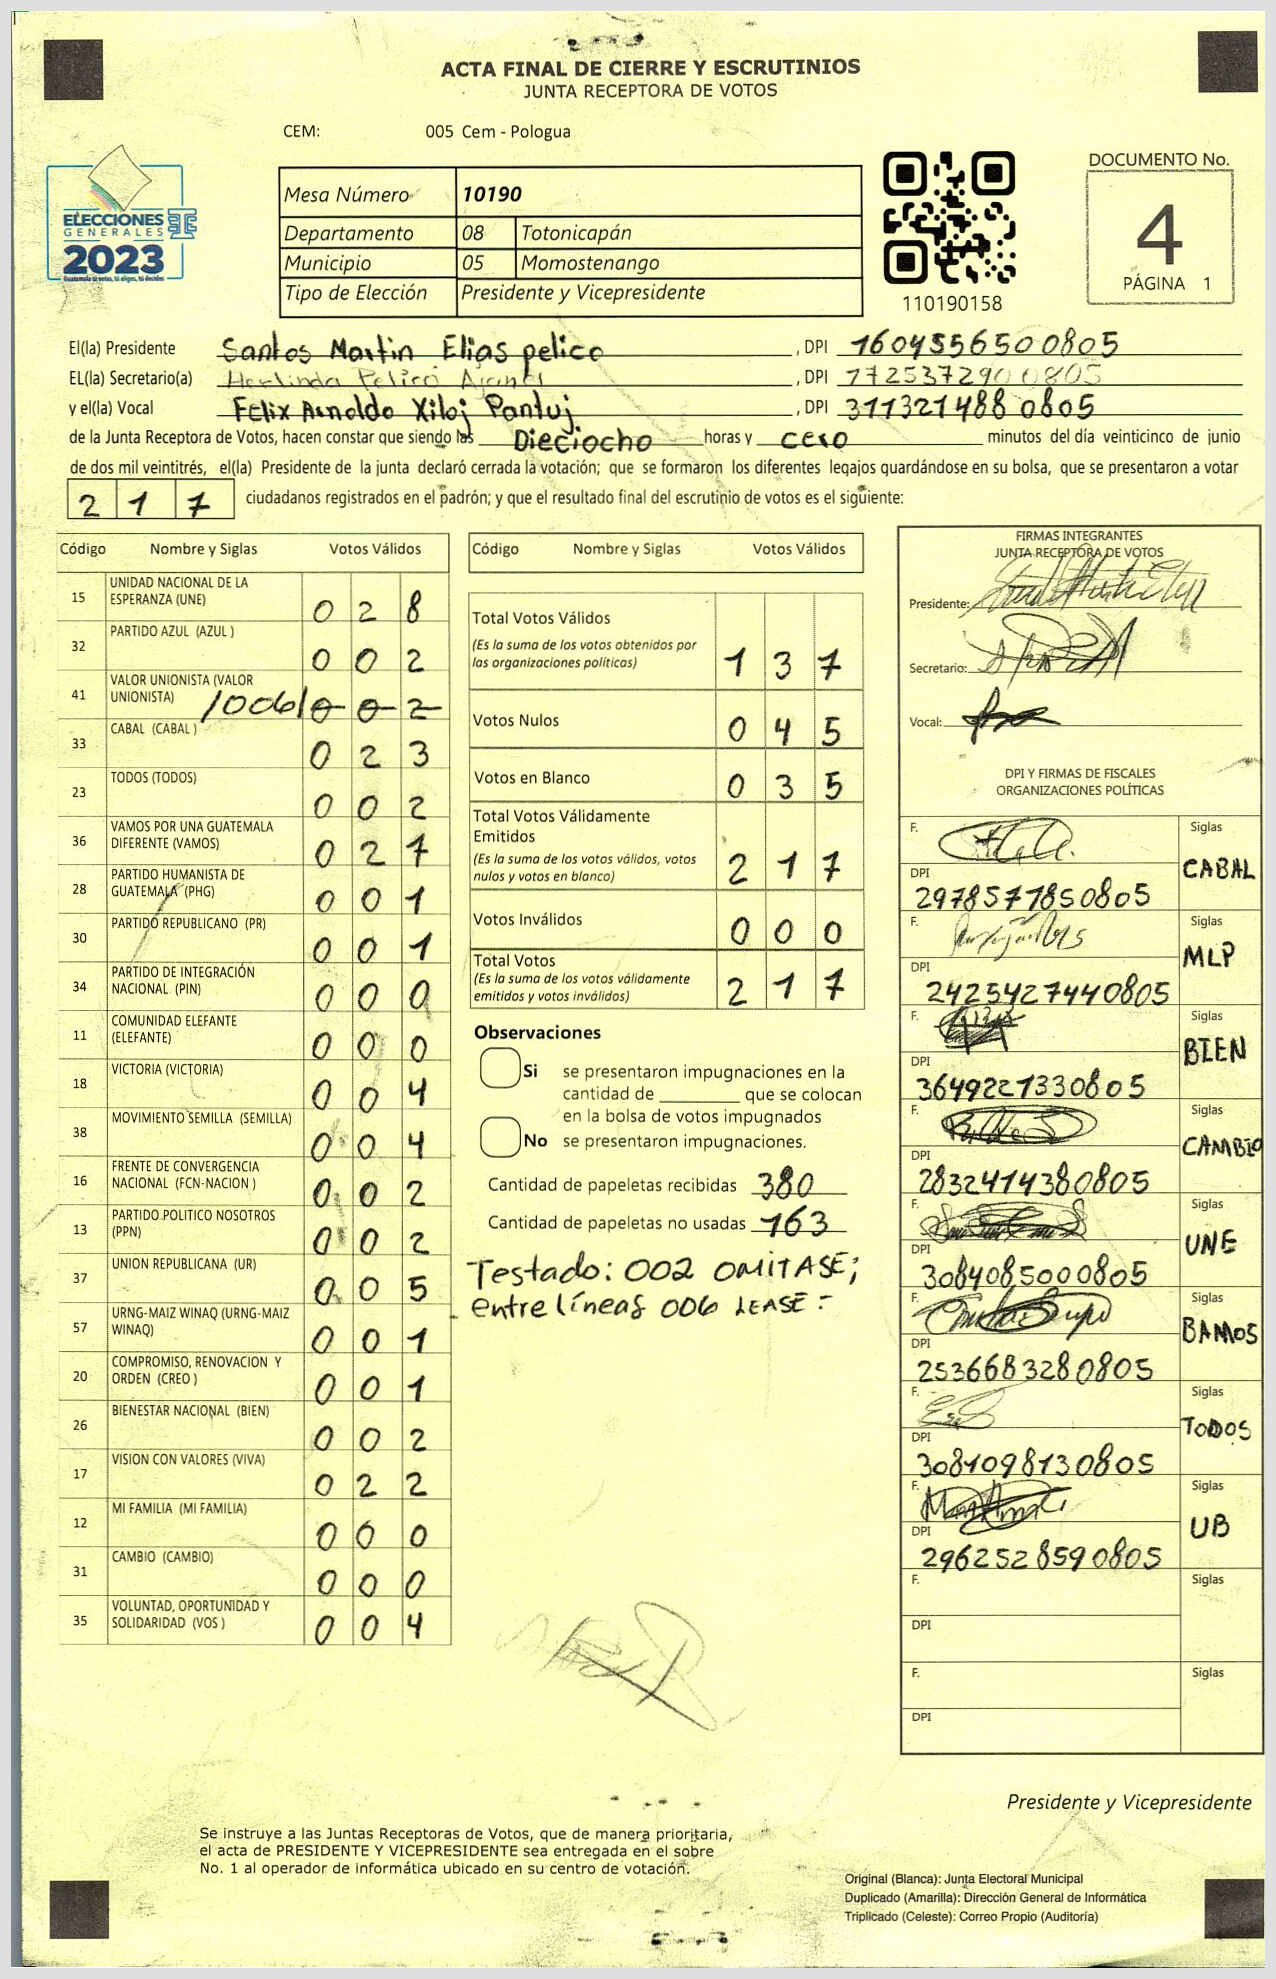 ACTA FINAL DE CIERRE Y ESCRUTINIOS
JUNTA RECEPTORA DE VOTOS
CEM: 005 Cem - Pologua
ELECCIONES
GENERALES
2023
Guatemala tú votas, tú eliges, tú decides
Mesa Número 10190
Departamento 08 Totonicapán
Municipio 05 Momostenango
Tipo de Elección Presidente y Vicepresidente
110190158
DOCUMENTO No.
4
PÁGINA 1
El(la) Presidente Santos Martin Elias pelico , DPI 1604556500805
EL(la) Secretario(a) Herlinda Pelico , DPI 1725372900805
y el(la) Vocal Felix Arnoldo Xiloj Pantuj , DPI 3113214880805
de la Junta Receptora de Votos, hacen constar que siendo las Dieciocho horas y cero minutos del día veinticinco de junio
de dos mil veintitrés, el(la) Presidente de la junta declaró cerrada la votación; que se formaron los diferentes legajos guardándose en su bolsa, que se presentaron a votar
217 ciudadanos registrados en el padrón; y que el resultado final del escrutinio de votos es el siguiente:
Código Nombre y Siglas Votos Válidos
15 UNIDAD NACIONAL DE LA ESPERANZA (UNE) 028
32 PARTIDO AZUL (AZUL ) 002
41 VALOR UNIONISTA (VALOR UNIONISTA) /006/ 002
33 CABAL (CABAL ) 023
23 TODOS (TODOS) 002
36 VAMOS POR UNA GUATEMALA DIFERENTE (VAMOS) 027
28 PARTIDO HUMANISTA DE GUATEMALA (PHG) 001
30 PARTIDO REPUBLICANO (PR) 001
34 PARTIDO DE INTEGRACIÓN NACIONAL (PIN) 000
11 COMUNIDAD ELEFANTE (ELEFANTE) 000
18 VICTORIA (VICTORIA) 004
38 MOVIMIENTO SEMILLA (SEMILLA) 004
16 FRENTE DE CONVERGENCIA NACIONAL (FCN-NACION ) 002
13 PARTIDO POLITICO NOSOTROS (PPN) 002
37 UNION REPUBLICANA (UR) 005
57 URNG-MAIZ WINAQ (URNG-MAIZ WINAQ) 001
20 COMPROMISO, RENOVACION Y ORDEN (CREO ) 001
26 BIENESTAR NACIONAL (BIEN) 002
17 VISION CON VALORES (VIVA) 022
12 MI FAMILIA (MI FAMILIA) 000
31 CAMBIO (CAMBIO) 000
35 VOLUNTAD, OPORTUNIDAD Y SOLIDARIDAD (VOS ) 004
Código Nombre y Siglas Votos Válidos
Total Votos Válidos 137
(Es la suma de los votos obtenidos por
las organizaciones políticas)
Votos Nulos 045
Votos en Blanco 035
Total Votos Válidamente
Emitidos 217
(Es la suma de los votos válidos, votos
nulos y votos en blanco)
Votos Inválidos 000
Total Votos 217
(Es la suma de los votos válidamente
emitidos y votos inválidos)
Observaciones
Si se presentaron impugnaciones en la
cantidad de ________ que se colocan
en la bolsa de votos impugnados
No se presentaron impugnaciones.
Cantidad de papeletas recibidas 380
Cantidad de papeletas no usadas 163
Testado: 002 OMITASE;
entre líneas 006 LEASE:-
FIRMAS INTEGRANTES
JUNTA RECEPTORA DE VOTOS
Presidente:
Secretario:
Vocal:
DPI Y FIRMAS DE FISCALES
ORGANIZACIONES POLÍTICAS
F. Siglas CABAL
DPI 2978577850805
F. Siglas MLP
DPI 2425427440805
F. Siglas BIEN
DPI 3649221330805
F. Siglas CAMBIO
DPI 2832414380805
F. Siglas UNE
DPI 3084085000805
F. Siglas BAMOS
DPI 2536683280805
F. Siglas TODOS
DPI 3081098130805
F. Siglas UB
DPI 2962528590805
F. Siglas
DPI
F. Siglas
DPI
Presidente y Vicepresidente
Se instruye a las Juntas Receptoras de Votos, que de manera prioritaria,
el acta de PRESIDENTE Y VICEPRESIDENTE sea entregada en el sobre
No. 1 al operador de informática ubicado en su centro de votación.
Original (Blanca): Junta Electoral Municipal
Duplicado (Amarilla): Dirección General de Informática
Triplicado (Celeste): Correo Propio (Auditoría)